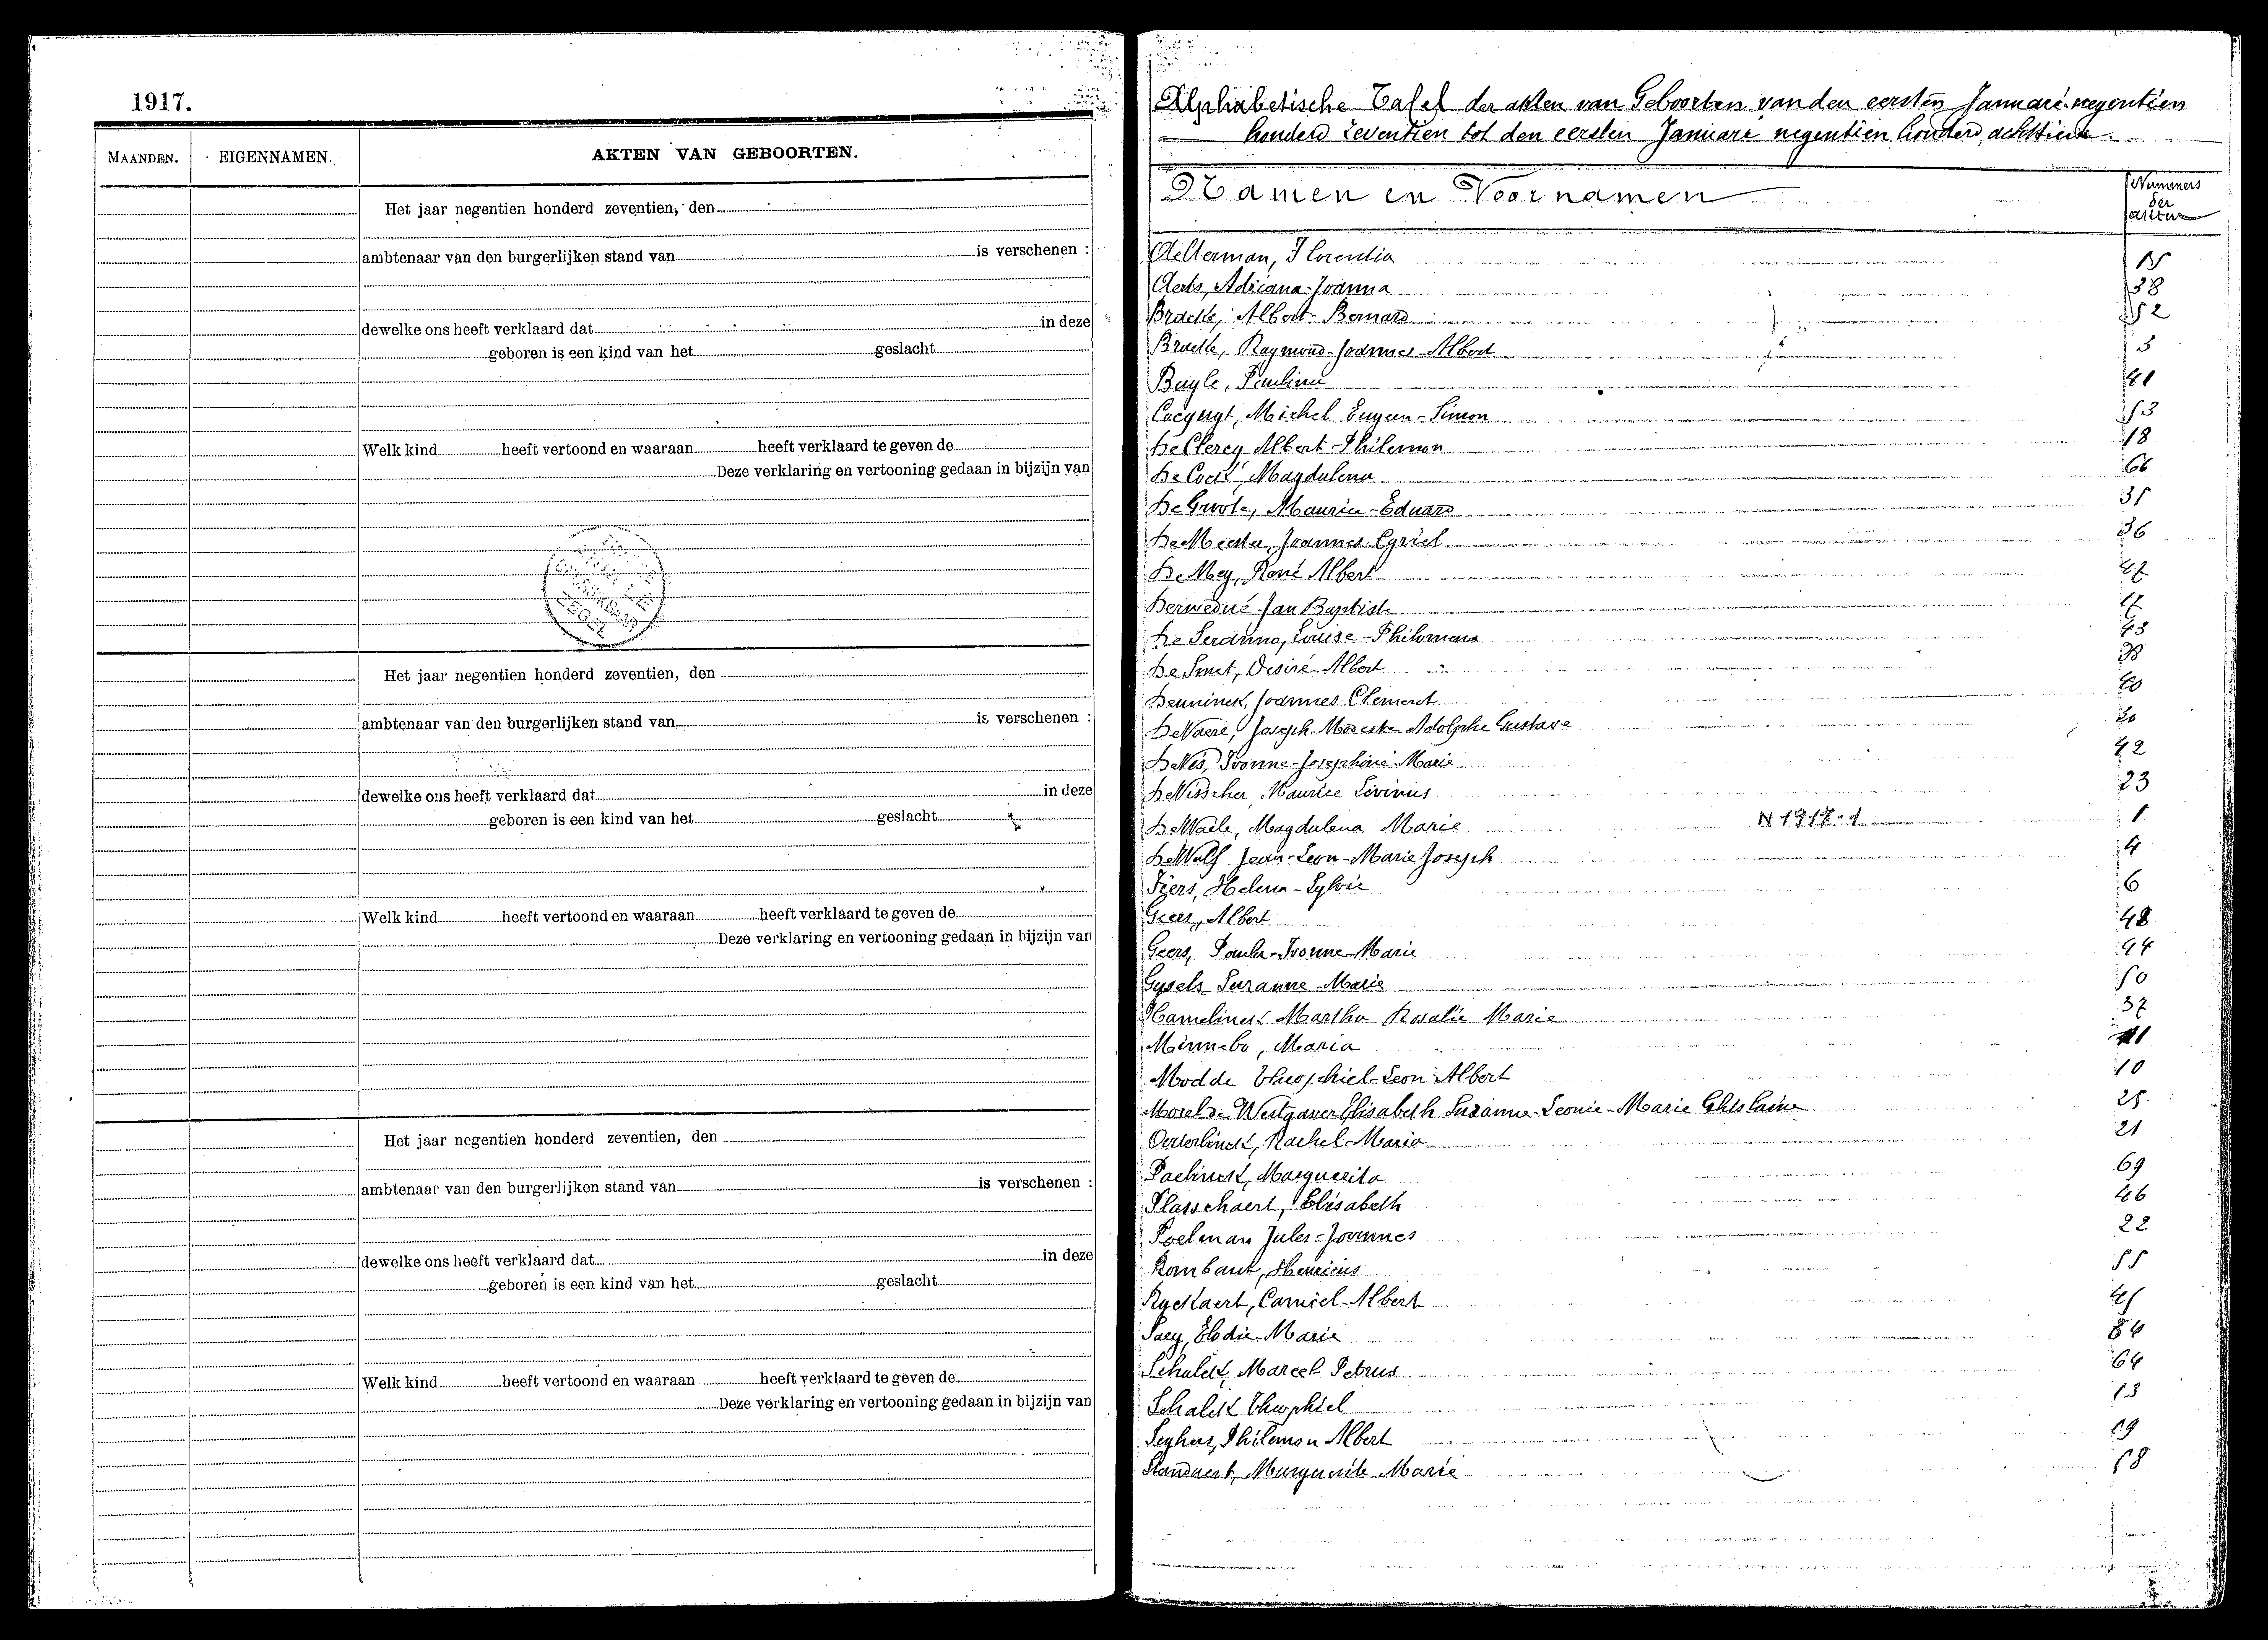 1917.
MAANDEN. EIGENNAMEN. AKTEN VAN GEBOORTEN.
Het jaar negentien honderd zeventien, den
ambtenaar van den burgerlijken stand van is verschenen :
dewelke ons heeft verklaard dat in deze
geboren is een kind van het geslacht
Welk kind heeft vertoond en waaraan heeft verklaard te geven de
Deze verklaring en vertooning gedaan in bijzijn van
Het jaar negentien honderd zeventien, den
ambtenaar van den burgerlijken stand van is verschenen :
dewelke ons heeft verklaard dat in deze
geboren is een kind van het geslacht
Welk kind heeft vertoond en waaraan heeft verklaard te geven de
Deze verklaring en vertooning gedaan in bijzijn van
Het jaar negentien honderd zeventien, den
ambtenaar van den burgerlijken stand van is verschenen :
dewelke ons heeft verklaard dat in deze
geboren is een kind van het geslacht
Welk kind heeft vertoond en waaraan heeft verklaard te geven de
Deze verklaring en vertooning gedaan in bijzijn van
Alphabetische Tafel der akten van Geboorten van den eersten Januari negentien
honderd zeventien tot den eersten Januari negentien honderd achttien.
Namen en Voornamen
Nummers
der
akten
Aelterman, Florentia
Aerts, Adriana-Joanna 38
Bracke, Albert Bernard 52
Bracke, Raymond-Joannes-Albert 3
Buyle, Paulina
Cocquyt, Michel Eugeen-Simon 53
De Clercq Albert-Philemon 18
De Cock Magdalena
De Groote, Maurice-Eduard
De Meester, Joannes-Cyriel 36
De Mey, René Albert 47
Jan Baptiste
Louise-Philomena 43
De Smet, Desiré-Albert
Deuninck, Joannes Clement
De Vaere, Joseph-Modeste Adolphe Gustave
De Vis, Ivonne-Josephine-Marie 42
De Visscher, Maurice Livinus 23
De Waele, Magdalena Marie N 1917-1 1
De Wulf Jean-Leon-Marie Joseph 4
Fiers, Helena-Sylvie 6
Geers, Albert 48
Geers, Paula-Ivonne-Marie 44
Gysels Suzanne Marie 50
Hamelinck Martha Rosalie Marie 37
Minnebo, Maria
Modde Theophiel-Leon Albert 10
Morel de Westgaver Elisabeth Suzanne-Leonie-Marie Ghislaine 25
Oosterlinck, Rachel-Maria 21
Paelinck, Marguerita 69
Plasschaert, Elisabeth 46
Poelman Jules-Joannes 22
Rombaut, Henricus 55
Ryckaert, Camiel-Albert 45
Saey, Elodie-Marie
Schalck, Marcel Petrus 64
Schalck Theophiel 13
Seghers, Philemon Albert 19
Standaert, Marguerite Marie 58